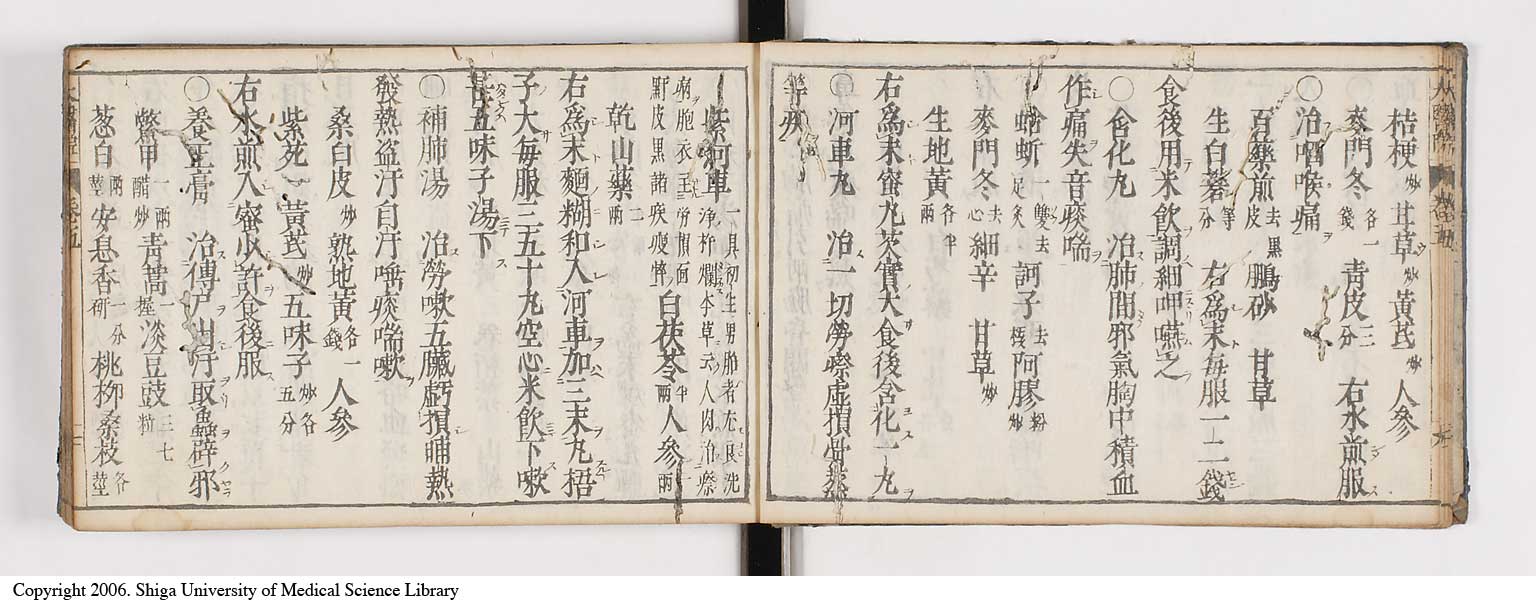 桔梗炒 甘草炒 黃芪炒 人參
麥門冬各一錢 青皮三分 右水煎服
○治咽喉痛
百藥煎去黑皮 鵬砂 甘草
生白礬等分 右為末每服一二錢
食後用米飲調細呷嚥之
○含化丸 治肺間邪氣胸中積血
作痛失音痰喘
蛤蚧一雙去足炙 訶子去核 阿膠粉炒
麥門冬去心 細辛 甘草炒
生地黃各半兩
右為末蜜丸芡實大食後含化一丸
○河車丸 治一切勞瘵虛損骨蒸
等疾
紫河車一具初生男胎者尤良洗淨杵爛本草云人肉治瘵
白茯苓半兩 人參一兩
乾山藥二兩
右為末麵糊和入河車加三末丸梧
子大每服三五十丸空心米飲下嗽
甚五味子湯下
○補肺湯 治勞嗽五臟虧損晡熱
發熱盜汗自汗喘痰喘嗽
桑白皮炒 熟地黃各一錢 人參
紫苑 黃芪炒 五味子炒各五分
右水煎入蜜少許食後服
鱉甲一兩醋炒 青蒿一握 淡豆豉三七粒
葱白 安息香一分研 桃柳桑枝各莖
Copyright 2006. Shiga University of Medical Science Library